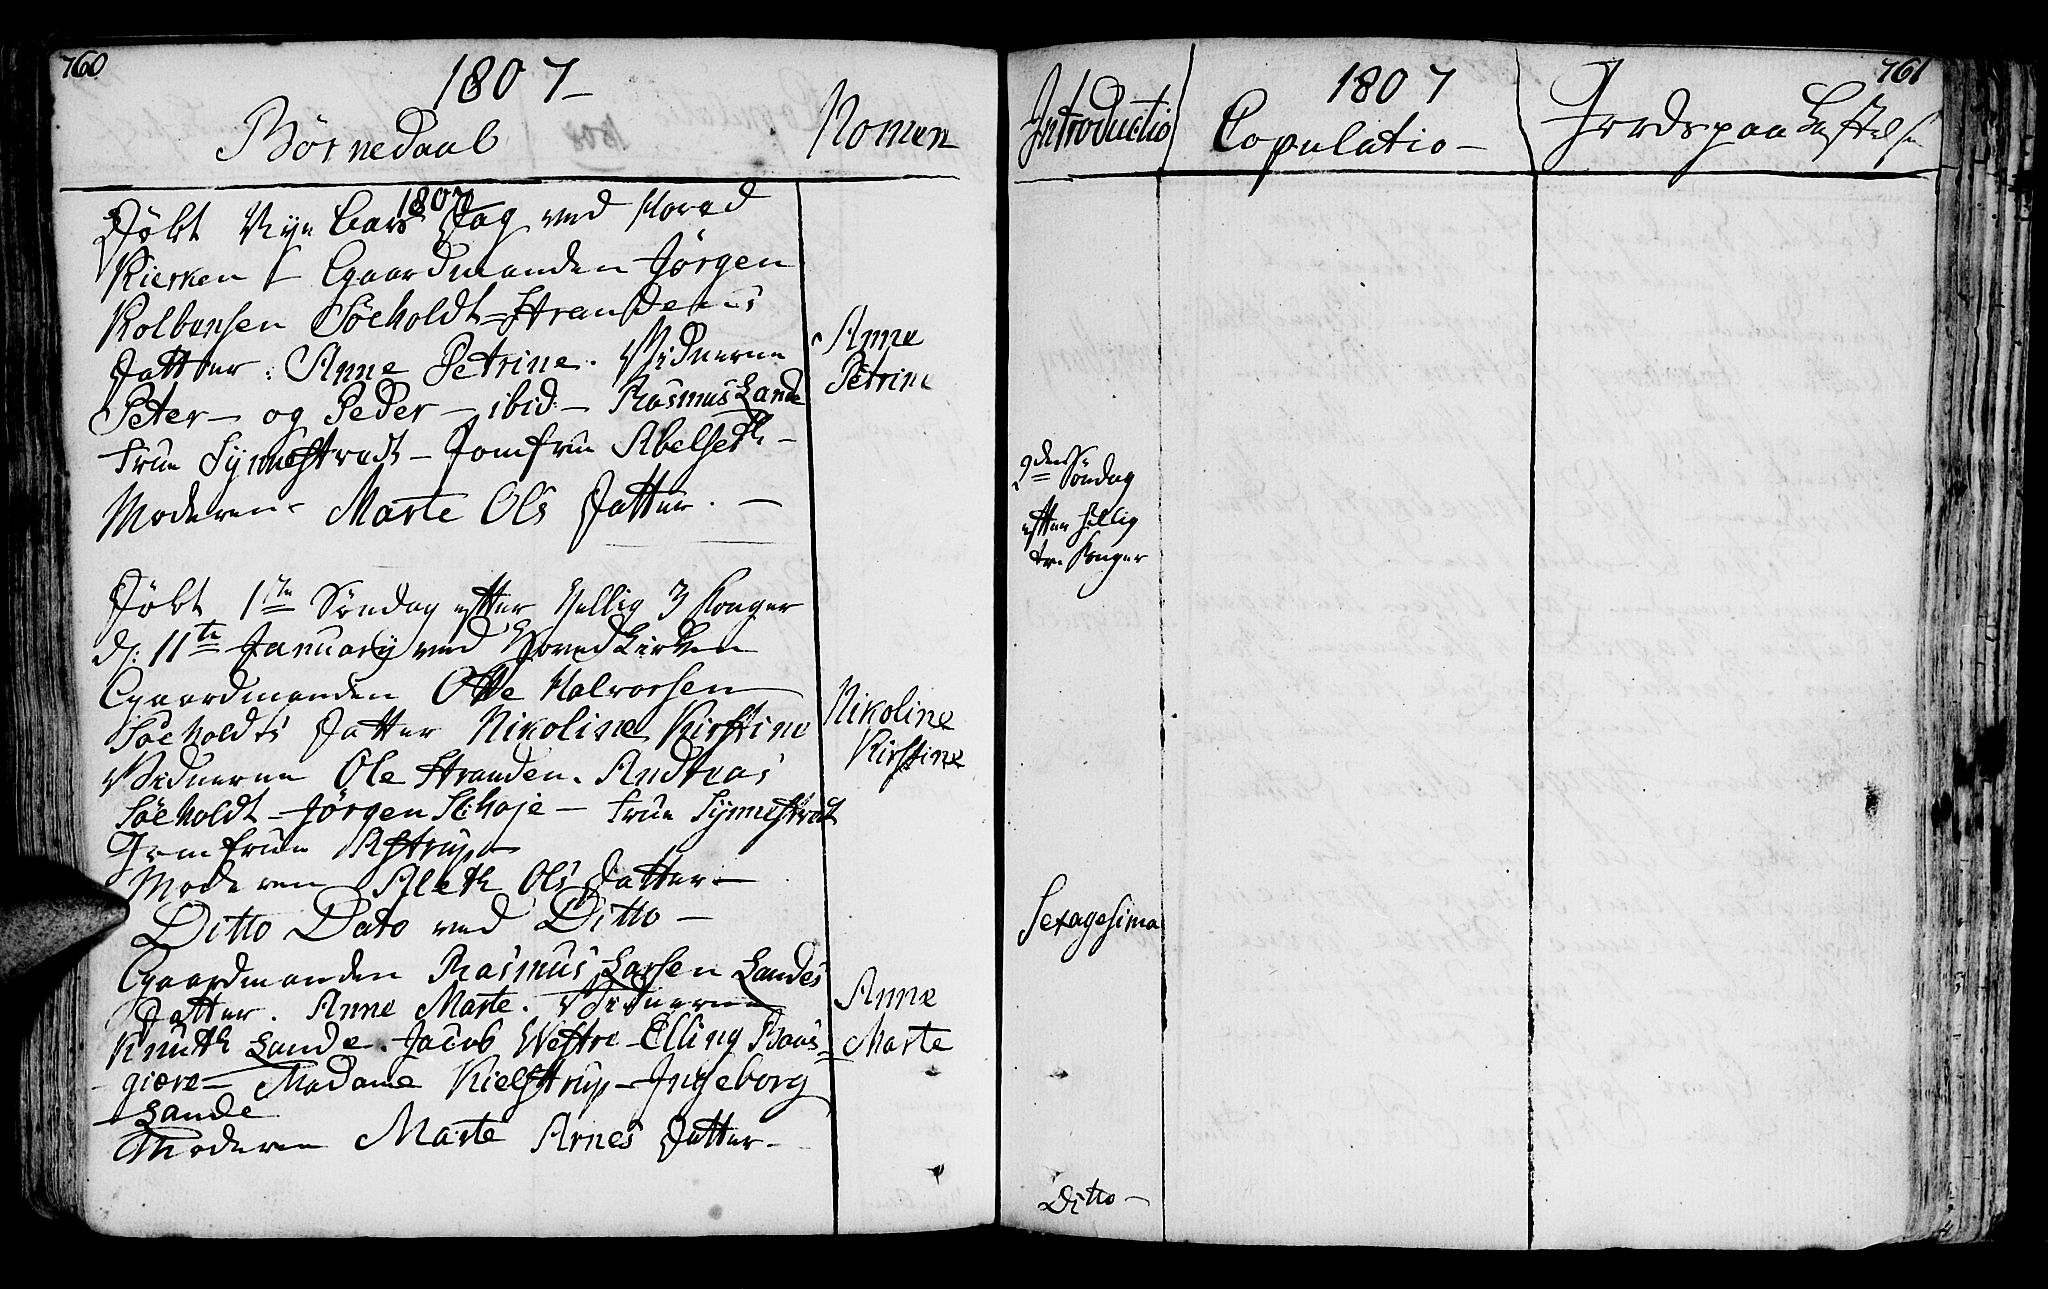 760
1807
Børnedaab
Nomen
1807
Døbt Nyt Aars Dag ved Hoved
Kirken Gaardmanden Jörgen
Kolbensen Söeholdt-Strandens
Datter: Anne Petrine. Vidnerne
Peter - og Peder - ibid - Rasmus Lande
Frue Synnestvedt - Jomfrue Abelseth -
Moderen - Marte Ols Datter. -
Anne
Petrine
Døbt 1ste Söndag efter Hellig 3 Konger
d: 11te January ved Hoved Kirken
Gaardmanden Otte Halvorsen
Söeholdts Datter Nikoline Kirstine
Vidnerne Ole Stranden. Andreas
Söeholdt - Jörgen - Frue Synnestvedt
Jomfrue Astrup
Moderen Aleth Ols Datter -
Nikoline
Kirstine
Ditto Dato ved Ditto -
Gaardmanden Rasmus Larsen Landes
Datter. Anne Marte. Vidnerne
Knuth Lande. Jacob Westre - Elling Baas=
giere - Madame Kielstrup - Ingeborg
Lande
Moderen Marte Arnes Datter -
Anne
Marte
761
Introductio
1807
Copulatio -
Jordspaa Kastelse
2den Söndag
efter Hellig
tre Konger
Sexagesima
Ditto -